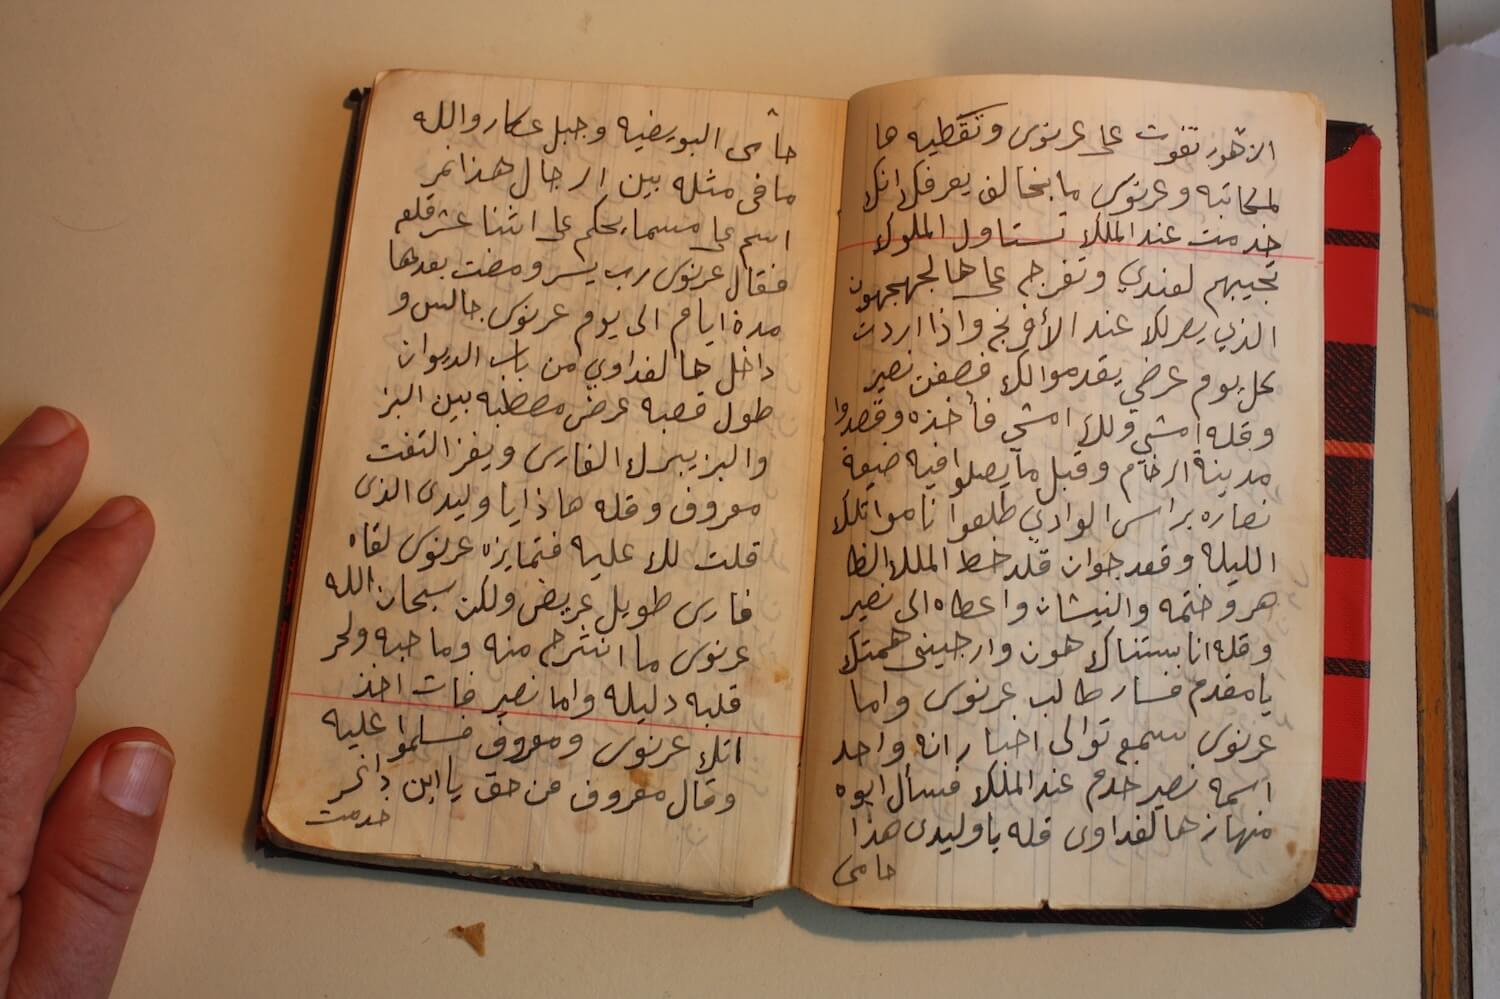 الازهور تفوت على عرنوس وتقطيه ها
لمكاتبه وعرنوس ما بخالف يعرفك انك
خدمت عند الملك تستاول الملوك
تجيبهم لعندي وتفرجم على هالجهجهون
الذي يصر لك عند الأفرنج واذا اردت
كل يوم عرضي يقدموا لك فصفن نصير
وقله إمشي وللا امشي فأخذه وقصدوا
مدينة الرخام وقبل ما يصلوا فيه ضيعة
نصاره براس الوادي طلعوا ناموا تلك
الليله وقعد جوان قلد خط الملك الظا
هر وختمه والنيشان واعطاه الى نصير
وقله انا بستناك هون وارجيني همتك
يا مقدم فسار طالب عرنوس واما
عرنوس سمع توالى اخبار انه واحد
اسمه نصير خدم عند الملك فسأل ابوه
منهاز هالفداوى قله يا وليدى هذا
حامى
حامى البويضيه وجبل عكار والله
ما فى مثله بين الرجال هذا نمر
اسم على مسما يحكم على اثنا عشر قلعه
فقال عرنوس رب يسر ومضت بعدها
مدة ايام الى يوم عرنوس جالس و
داخل هالفداوي من باب الديوان
طول قصبه عرض مصطبه بين البز
والبز يبرك الفارس ويفز التفت
معروف وقله هاذا يا وليدى الذى
قلت لك عليه فتمايزه عرنوس لقاه
فارس طويل عريض ولكن سبحان الله
عرنوس ما انشرح منه وما حبه ولحر
قلبه دليله واما نصير فات اخذ
اتك عرنوس ومعروف فسلموا عليه
وقال معروف من حق يا ابن
خدمت